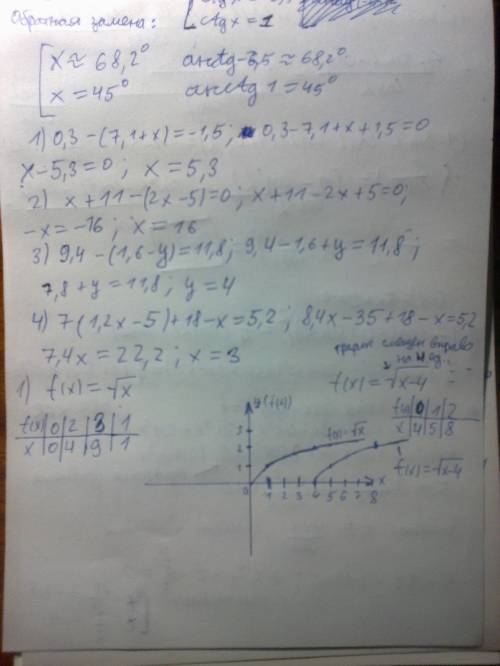 Обратная замена:
ctg x = 1
x ≈ 68,2° arctg 2,5 ≈ 68,2°
x = 45° arcctg 1 = 45°
1) 0,3-(7,1+x)=-1,5; 0,3-7,1+x+1,5=0
x-5,3=0; x=5,3
2) x+11-(2x-5)=0; x+11-2x+5=0;
-x=-16; x=16
3) 9,4-(1,6-y)=11,8; 9,4-1,6+y=11,8;
7,8+y=11,8; y=4
4) 7(1,2x-5)+18-x=5,2; 8,4x-35+18-x=5,2
7,4x=22,2; x=3
график вправо
на 4 ед.
1) f(x)=√x
f(x)=√x-4
f(x) 0 2 3 1
x 0 4 9 1
f(x) 0 1 2
x 4 5 8
y(f(x))
3
2
1
f(x)=√x
f(x)=√x-4
0 1 2 3 4 5 6 7 8 x